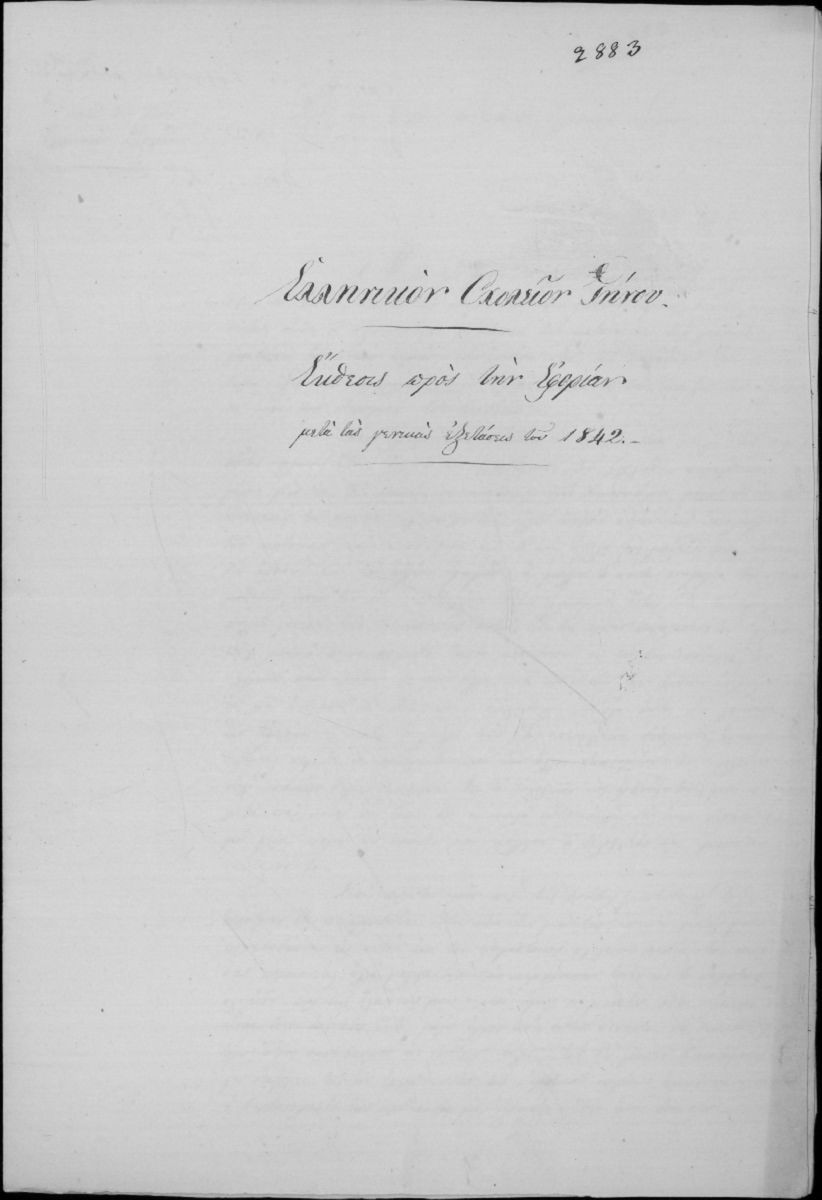 2883
Ἑλληνικὸν Σχολεῖον Τήνου.
Ἔκθεσις πρὸς τὴν Ἐφορίαν
μετὰ τὰς γενικὰς ἐξετάσεις τοῦ 1842.-